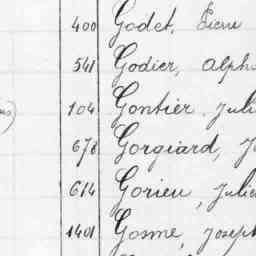 400 Godet, Pierre
541 Godier, Alpho
104 Gontier, Juli
678 Gorgiard, J
614 Gorieu, Julie
1401 Gosme, Joseph